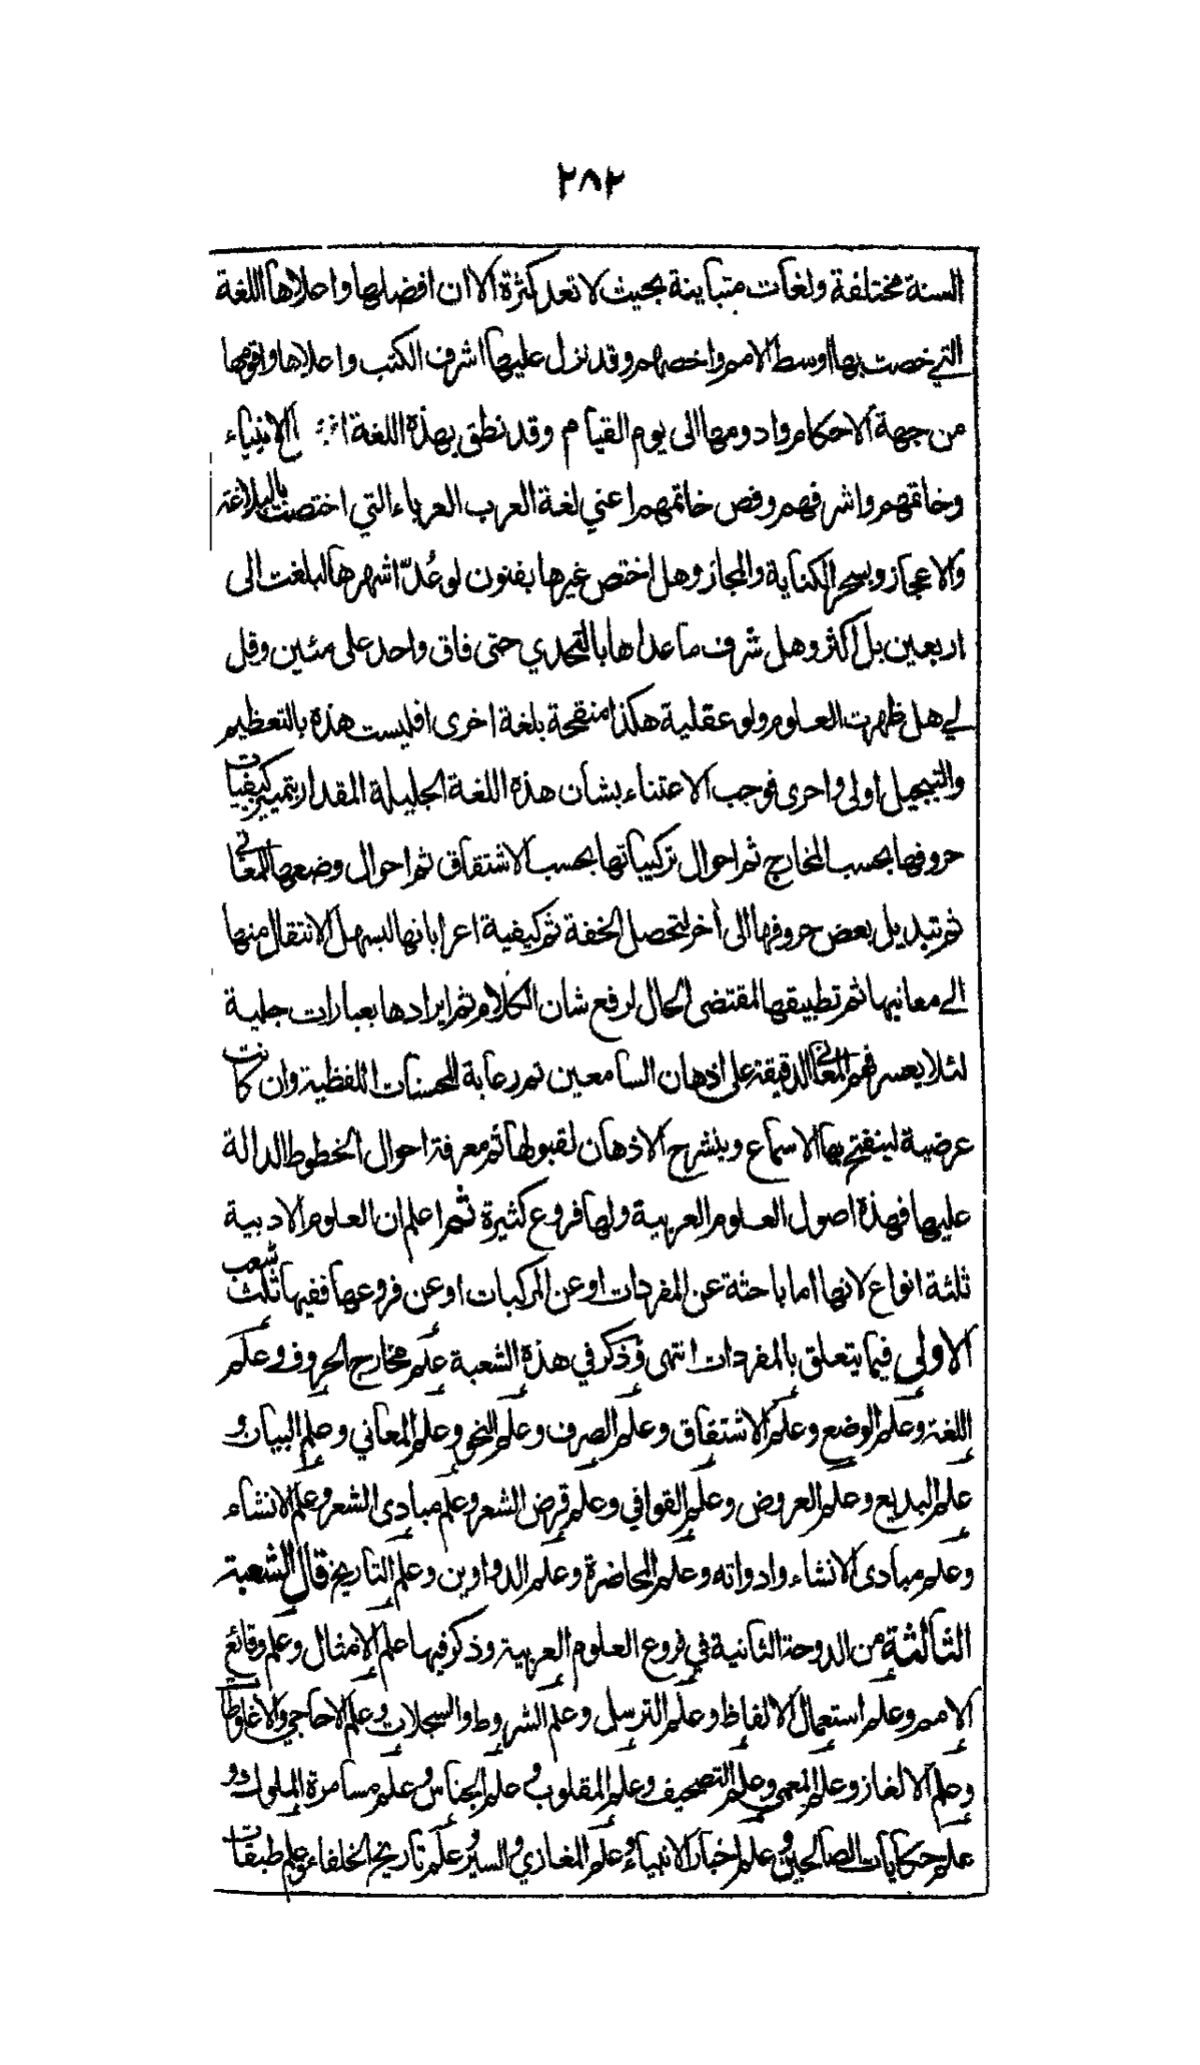 ٢٨٢
السنة مختلفة ولغات متباينة بحيث لا تعد كثرة الا ان افضلها واحلاها اللغة
التي خصت بها اوسط الامم واخصهم وقد نزل عليها اشرف الكتب واحلاها واقومها
من جهة الاحكام وادومها الى يوم القيام وقد نطق بهذه اللغة الانبياء
وخاتمهم واشرفهم وفص خاتمهم اعني لغة العرب العرباء التي اختصت بالبلاغة
والاعجاز وبسحر الكناية والمجاز وهل اختص غيرها بفنون لو عُدّ اشهرها لبلغت الى
اربعين بل اكثر وهل شرف ما عداها بالتحدي حتى فاق واحد على مئين وقل
لي هل ظهرت العلوم ولو عقلية هكذا منقحة بلغة اخرى افليست هذه بالتعظيم
والتبجيل اولى واحرى فوجب الاعتناء بشان هذه اللغة الجليلة المقدار بتمييز كيفيات
حروفها بحسب المخارج ثم احوال تركيباتها بحسب الاشتقاق ثم احوال وضعها للمعاني
ثم تبديل بعض حروفها الى أخر لتحصل الخفة ثم كيفية اعراباتها لبسهل الانتقال منها
الى معانيها ثم تطبيقها لمقتضى الحال لرفع شان الكلام ثم ايرادها بعبارات جلية
لئلا يعسر فهم المعاني الدقيقة على اذهان السامعين ثم رعاية المحسنات اللفظية وان كانت
عرضية لينفتح بها الاسماع وينشرح الاذهان لقبولها ثم معرفة احوال الخطوط الدالة
عليها فهذه اصول العلوم العربية ولها فروع كثيرة ثم اعلم ان العلوم الادبية
ثلثة انواع لانها اما باحثة عن المفردات او عن المركبات او عن فروعها ففيها ثلث شعب
الاولى فيما يتعلق بالمفردات انتهى وذكر في هذه الشعبة علم مخارج الحروف وعلم
اللغة وعلم الوضع وعلم الاشتقاق وعلم الصرف وعلم النحو وعلم المعاني وعلم البيان و
علم البديع وعلم العروض وعلم القوافي وعلم قرض الشعر وعلم مبادى الشعر وعلم الانشاء
وعلم مبادى الانشاء وادواته وعلم المحاضرة وعلم الدواوين وعلم التاريخ قال الشعبة
الثالثة من الدوحة الثانية في فروع العلوم العربية وذكر فيها علم الامثال وعلم وقائع
الامم وعلم استعمال الالفاظ وعلم الترسل وعلم الشروط والسجلات وعلم الاحاجي والاغلوطا
وعلم الالغاز وعلم المعمى وعلم التصحيف وعلم المقلوب وعلم الجناس وعلم مسامرة الملوك و
علم حكايات الصالحين وعلم اخبار الانبياء وعلم المغازي والسير وعلم تاريخ الخلفاء وعلم طبقات